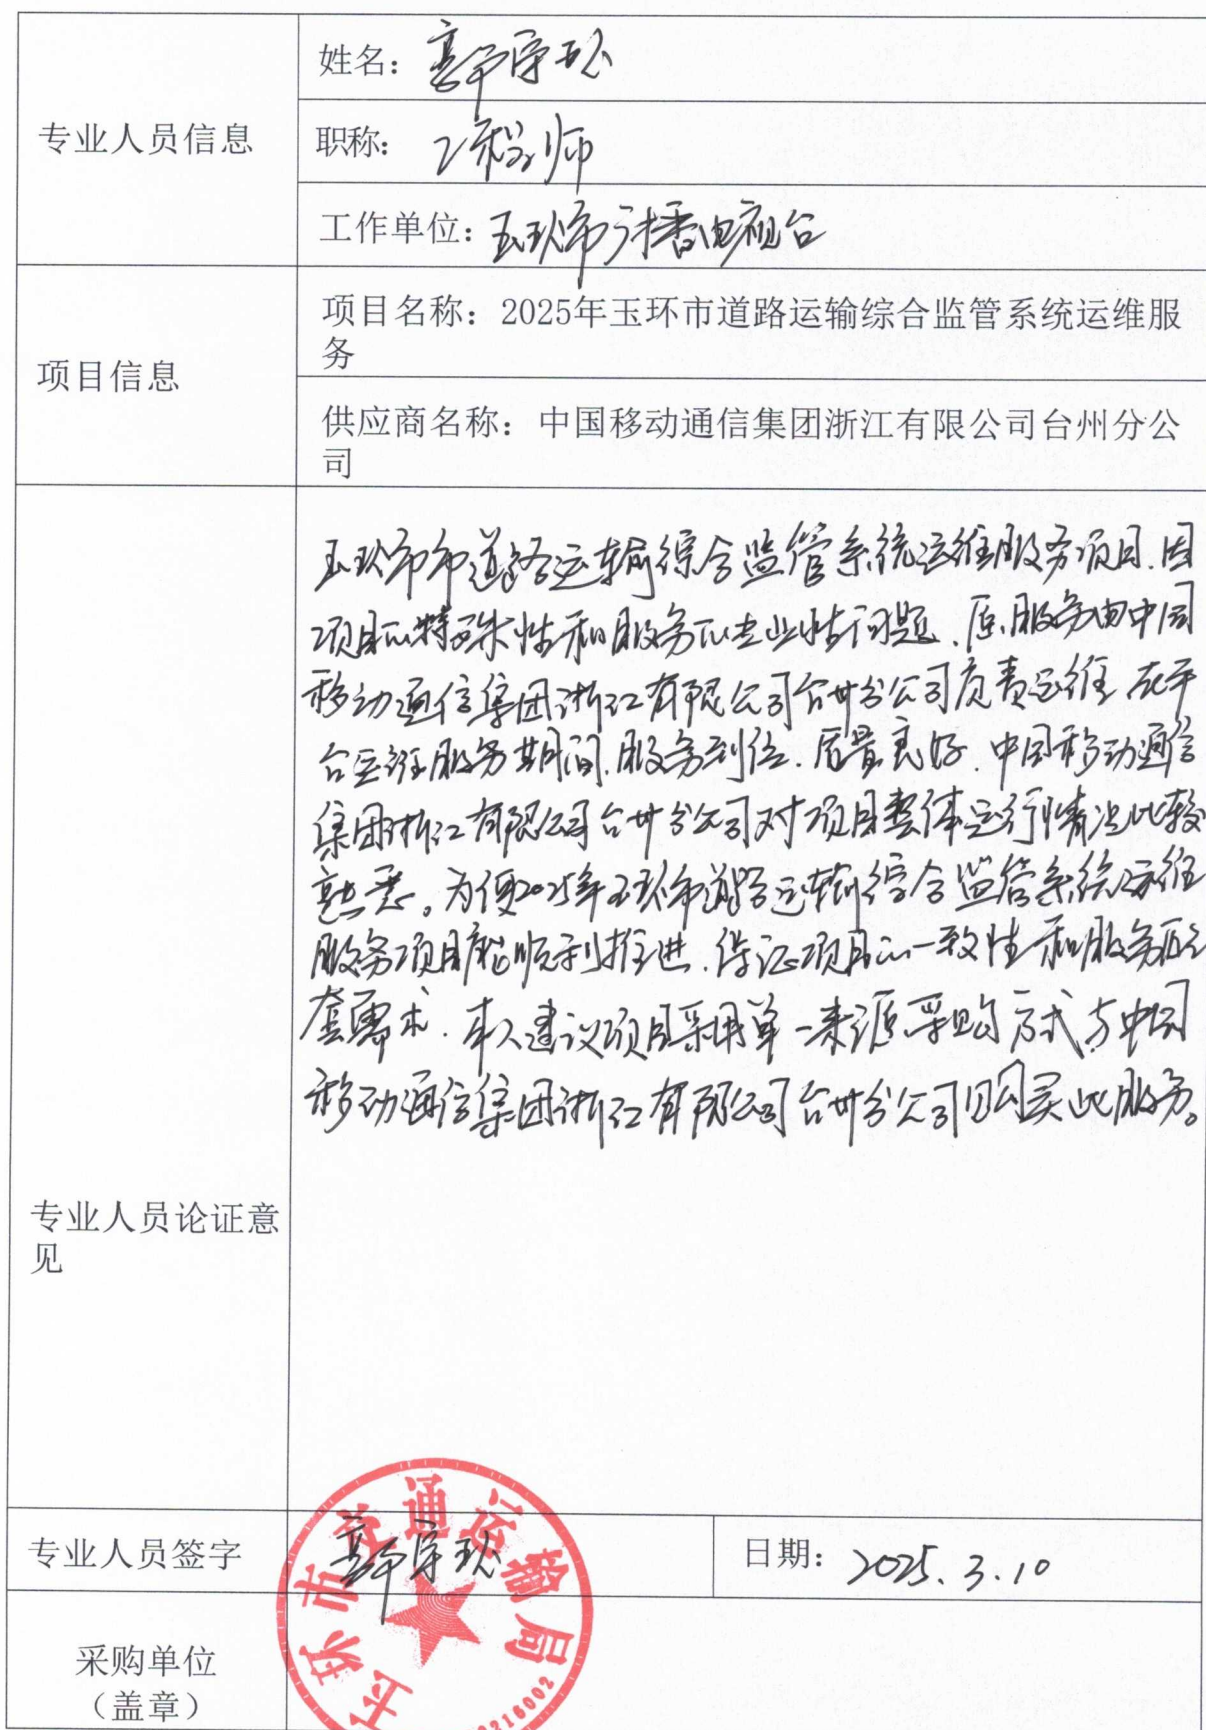 专业人员信息
姓名：
职称：工程师
工作单位：玉环市广播电视台
项目信息
项目名称：2025年玉环市道路运输综合监管系统运维服
务
供应商名称：中国移动通信集团浙江有限公司台州分公
司
玉环市市道路运输综合监管系统运维服务项目，因
项目的特殊性和服务的专业性问题，原服务由中国
移动通信集团浙江有限公司台州分公司负责运维，在平
台运维服务期间，服务到位，质量良好，中国移动通信
集团浙江有限公司台州分公司对项目整体运行情况比较
熟悉。为使2025年玉环市道路运输综合监管系统运维
服务项目能顺利推进，保证项目的一致性和服务配
套需求，本人建议项目采用单一来源采购方式与中国
移动通信集团浙江有限公司台州分公司购买此服务。
专业人员论证意
见
专业人员签字
日期：2025.3.10
采购单位
（盖章）
玉环市交通运输局
216002